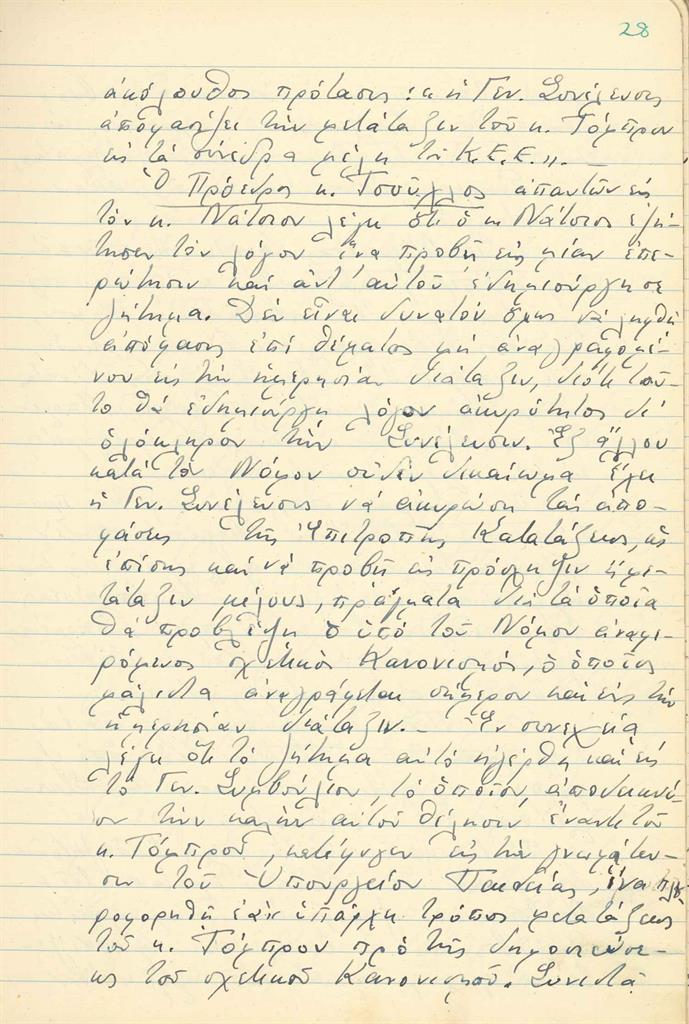 28
ἀκόλουθος πρότασις: «ἡ Γεν. Συνέλευσις
ἀποφασίζει τὴν μετάταξιν τοῦ κ. Τόμπρου
εἰς τὰ σύνεδρα μέλη τοῦ Κ.Ε.Ε.». —
Ὁ Πρόεδρος κ. Τσοῦχλος ἀπαντῶν εἰς
τὸν κ. Νάτσιον λέγει ὅτι ὁ κ. Νάτσιος ἐζή-
τησεν τὸν λόγον ἵνα προβῇ εἰς μίαν ἐπε-
ρώτησιν καὶ ἀντ' αὐτοῦ ἐδημιούργησε
ζήτημα. Δὲν εἶναι δυνατὸν ὅμως νὰ ληφθῇ
ἀπόφασις ἐπὶ θέματος μὴ ἀναγραφομέ-
νου εἰς τὴν ἡμερησίαν διάταξιν, διότι τοῦ-
το θὰ ἐδημιούργει λόγον ἀκυρότητος δι'
ὁλόκληρον τὴν Συνέλευσιν. Ἐξ ἄλλου
κατὰ τὸν Νόμον οὐδὲν δικαίωμα ἔχει
ἡ Γεν. Συνέλευσις νὰ ἀκυρώσῃ τὰς ἀπο-
φάσεις τῆς Ἐπιτροπῆς Κατατάξεως, ὡς
ἐπίσης καὶ νὰ προβῇ εἰς πρόσληψιν ἢ με-
τάταξιν μέλους, πράγματα διὰ τὰ ὁποῖα
θὰ προβλέψῃ ὁ ὑπὸ τοῦ Νόμου ἀναφε-
ρόμενος σχετικὸς Κανονισμός, ὁ ὁποῖος
μάλιστα ἀναγράφεται σήμερον καὶ εἰς τὴν
ἡμερησίαν διάταξιν. — Ἐν συνεχείᾳ
λέγει ὅτι τὸ ζήτημα αὐτὸ ἠγέρθη καὶ εἰς
τὸ Γεν. Συμβούλιον, τὸ ὁποῖον, ἀποδεικνύ-
ον τὴν καλὴν αὐτοῦ θέλησιν ἔναντι τοῦ
κ. Τόμπρου, κατέφυγεν εἰς τὴν γνωμάτευ-
σιν τοῦ Ὑπουργείου Παιδείας, ἵνα πλη-
ροφορηθῇ ἐὰν ὑπάρχῃ τρόπος μετατάξεως
τοῦ κ. Τόμπρου πρὸ τῆς δημοσιεύσε-
ως τοῦ σχετικοῦ Κανονισμοῦ. Συνιστᾷ